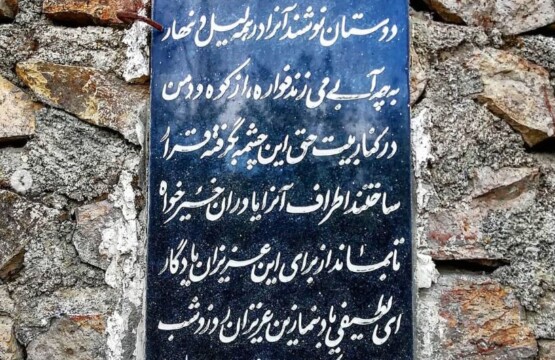 دوستان نوشند آنرا در همه لیل و نهار
به چه آبی می زند فواره، از کوه و دمن
در کنار بیت حق این چشمه بگرفته قرار
ساختند اطراف آنرا یاوران خیرخواه
تا بماند از برای این عزیزان یادگار
ای لطیفی یاد بنما زین عزیزان روز و شب